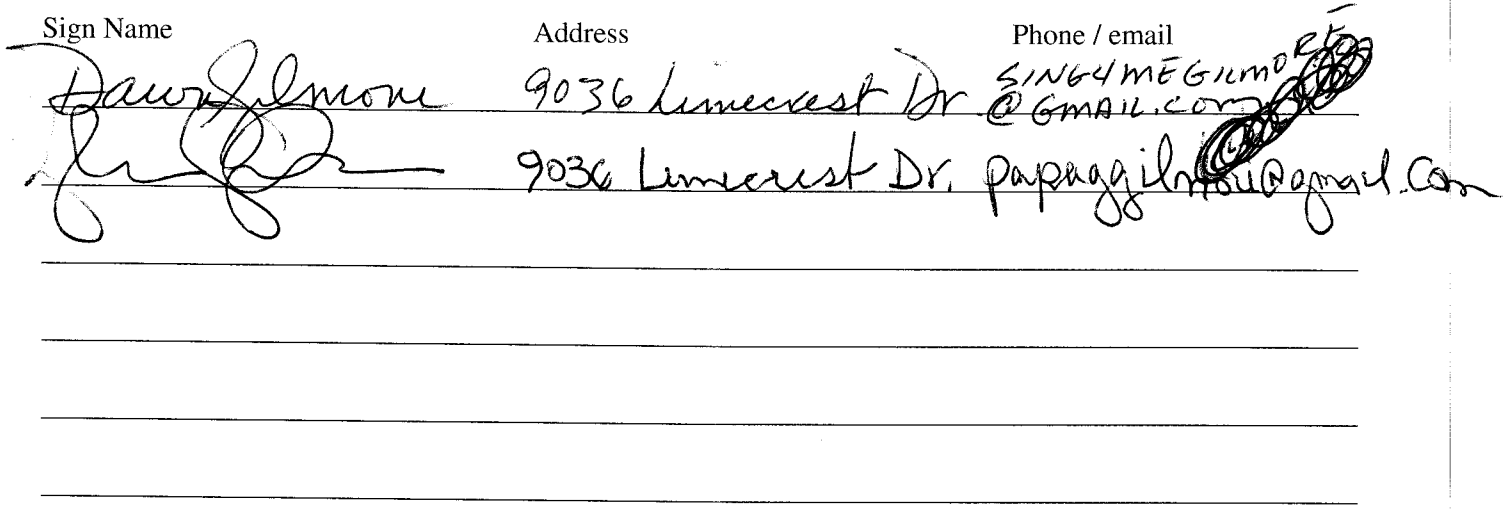 Sign Name Address Phone / email
Dawn Gilmore 9036 Limecrest Dr. SING4MEGILMORE
@GMAIL.COM
9036 Limecrest Dr. papaggilmore@gmail.com